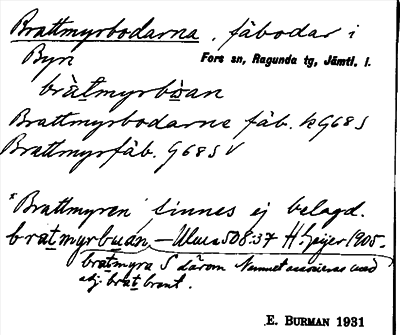 Brattmyrbodarna, fäbodar i
Byn Fors sn, Ragunda tg, Jämtl. l.
bràt̲myrbò̲an
Brattmyrbodarne fäb. kG68S
Brattmyrfäb. G68SV
"Brattmyren" finnes ej belagd.
brat̲myrbuán, — Ulma 508:37 H. Geijer 1905.
brat̲myra S därom Namnet associeras med
adj. brat̲ brant.
E. BURMAN 1931